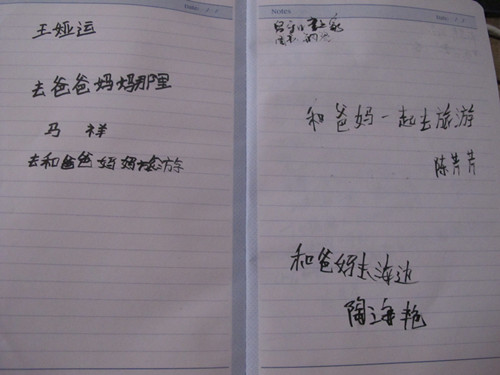 Date:
王娅运
去爸爸妈妈那里
马祥
去和爸爸妈妈旅游
Notes
Date:
和爸妈一起去旅游
陈芳芳
和爸妈去海边
陶海艳